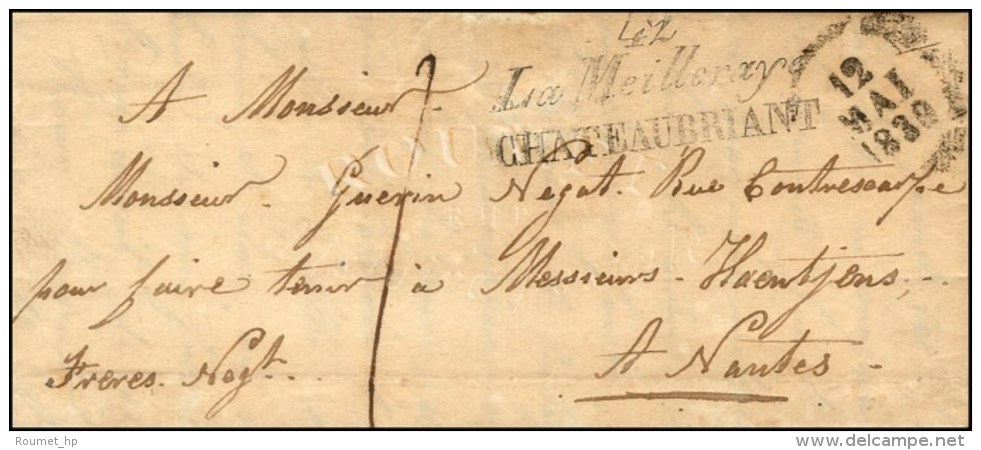 42
La Meilleraye
CHATEAUBRIANT
12
MAI
1839
A Monsieur
Monsieur Guerin Negot. Rue Contrescarpe
pour faire tenir à Messieurs Haentjens,
Freres Negt.
A Nantes
Roumet_hp
delcampe.net